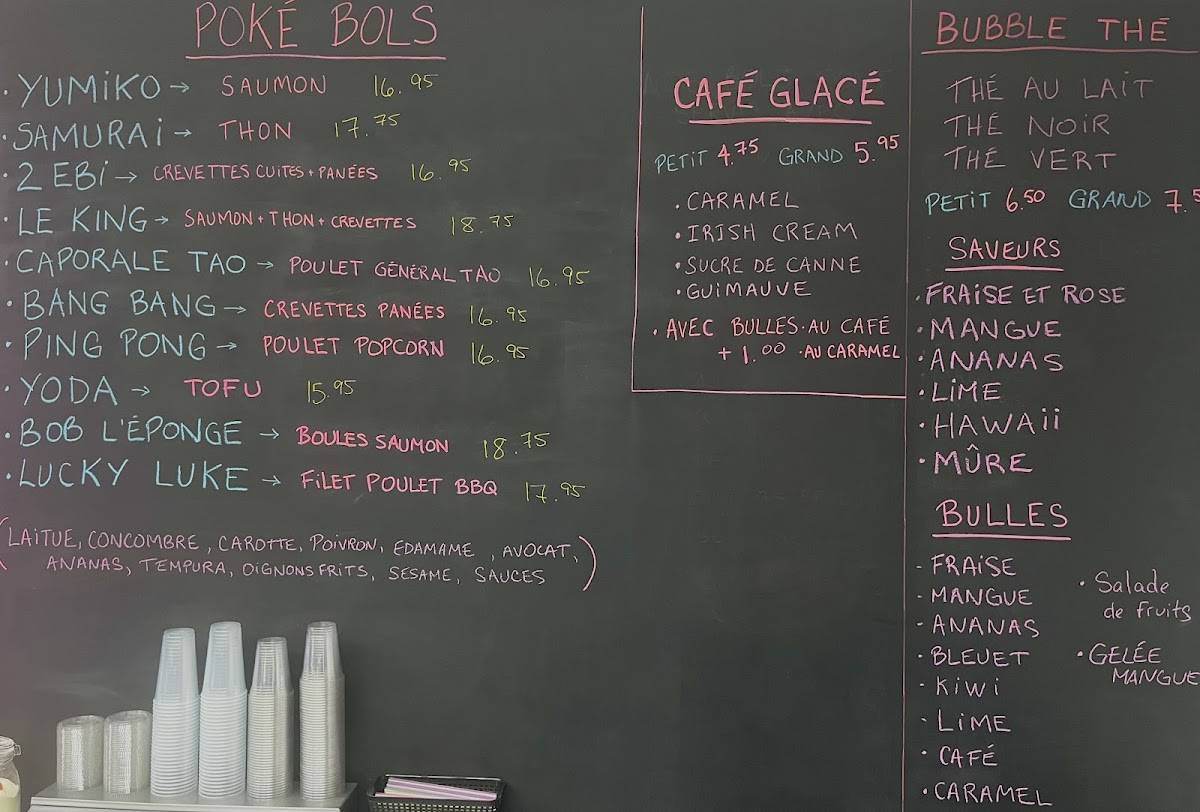 POKÉ BOLS
· YUMiKO → SAUMON 16.95
· SAMURAi → THON 17.75
· 2 EBi → CREVETTES CUITES + PANÉES 16.95
· LE KING → SAUMON + THON + CREVETTES 18.75
· CAPORALE TAO → POULET GÉNÉRAL TAO 16.95
· BANG BANG → CREVETTES PANÉES 16.95
· PING PONG → POULET POPCORN 16.95
· YODA → TOFU 15.95
· BOB L'ÉPONGE → BOULES SAUMON 18.75
· LUCKY LUKE → FiLET POULET BBQ 17.95
(LAiTUE, CONCOMBRE, CAROTTE, POiVRON, EDAMAME, AVOCAT,
ANANAS, TEMPURA, OiGNONS FRiTS, SESAME, SAUCES)
CAFÉ GLACÉ
PETiT 4.75 GRAND 5.95
· CARAMEL
· IRISH CREAM
· SUCRE DE CANNE
· GUiMAUVE
· AVEC BULLES · AU CAFÉ
+ 1.00 · AU CARAMEL
BUBBLE THÉ
THÉ AU LAiT
THÉ NOiR
THÉ VERT
PETiT 6.50 GRAND 7.5
SAVEURS
· FRAiSE ET ROSE
· MANGUE
· ANANAS
· LiME
· HAWAii
· MÛRE
BULLES
- FRAiSE
- MANGUE
- ANANAS
· BLEUET
- KiWi
- LiME
· CAFÉ
· CARAMEL
· Salade
de fruits
· GELÉE
MANGUE